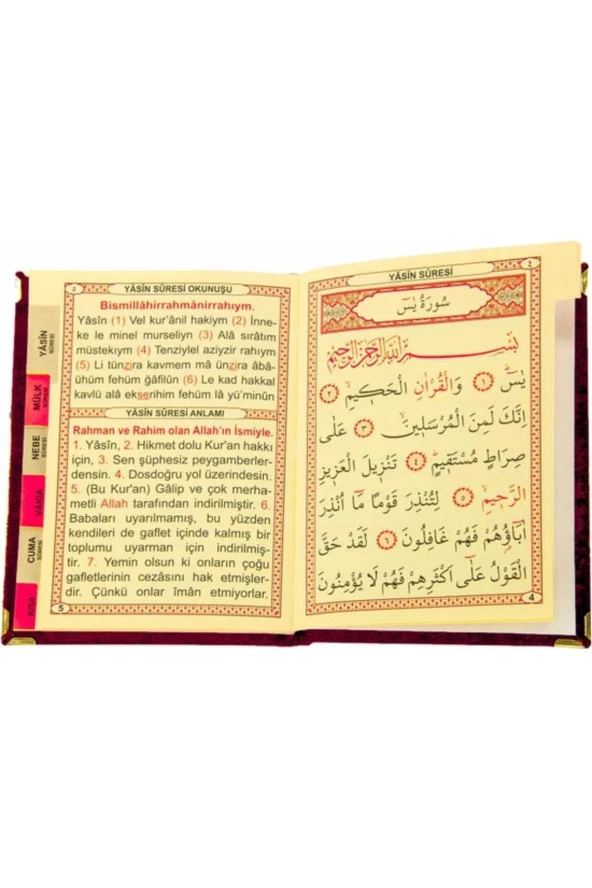 YÂSİN SÛRESİ OKUNUŞU
Bismillâhirrahmânirrahıym.
Yâsîn (1) Vel kur’ânil hakiym (2) İnne-
ke le minel murseliyn (3) Alâ sırâtım
müstekıym (4) Tenziylel aziyzir rahıym
(5) Li tünzira kavmem mâ ünzira âbâ-
ühüm fehüm gâfilûn (6) Le kad hakkal
kavlü alâ ekserihim fehüm lâ yü’minûn
YÂSİN SÛRESİ ANLAMI
Rahman ve Rahim olan Allah’ın İsmiyle.
1. Yâsîn, 2. Hikmet dolu Kur’an hakkı
için, 3. Sen şüphesiz peygamberler-
densin. 4. Dosdoğru yol üzerindesin.
5. (Bu Kur’an) Gâlip ve çok merha-
metli Allah tarafından indirilmiştir. 6.
Babaları uyarılmamış, bu yüzden
kendileri de gaflet içinde kalmış bir
toplumu uyarman için indirilmiş-
tir. 7. Yemin olsun ki onların çoğu
gafletlerinin cezasını hak etmişler-
dir. Çünkü onlar îmân etmiyorlar.
5
YÂSİN SÛRESİ
MÜLK SÛRESİ
NEBE SÛRESİ
VÂKIA
CUMA SÛRESİ
٤
YÂSİN SÛRESİ
سُورَةُ يٰسٓ
بِسْمِ اللّٰهِ الرَّحْمٰنِ الرَّحِيمِ
يٰسٓ ﴿١﴾ وَالْقُرْاٰنِ الْحَكِيمِ ﴿٢﴾
اِنَّكَ لَمِنَ الْمُرْسَلِينَ ﴿٣﴾ عَلٰى
صِرَاطٍ مُسْتَقِيمٍ ﴿٤﴾ تَنْزِيلَ الْعَزِيزِ
الرَّحِيمِ ﴿٥﴾ لِتُنْذِرَ قَوْمًا مَٓا اُنْذِرَ
اٰبَٓاؤُ۬هُمْ فَهُمْ غَافِلُونَ ﴿٦﴾ لَقَدْ حَقَّ
الْقَوْلُ عَلٰٓى اَكْثَرِهِمْ فَهُمْ لَا يُؤْمِنُونَ
4